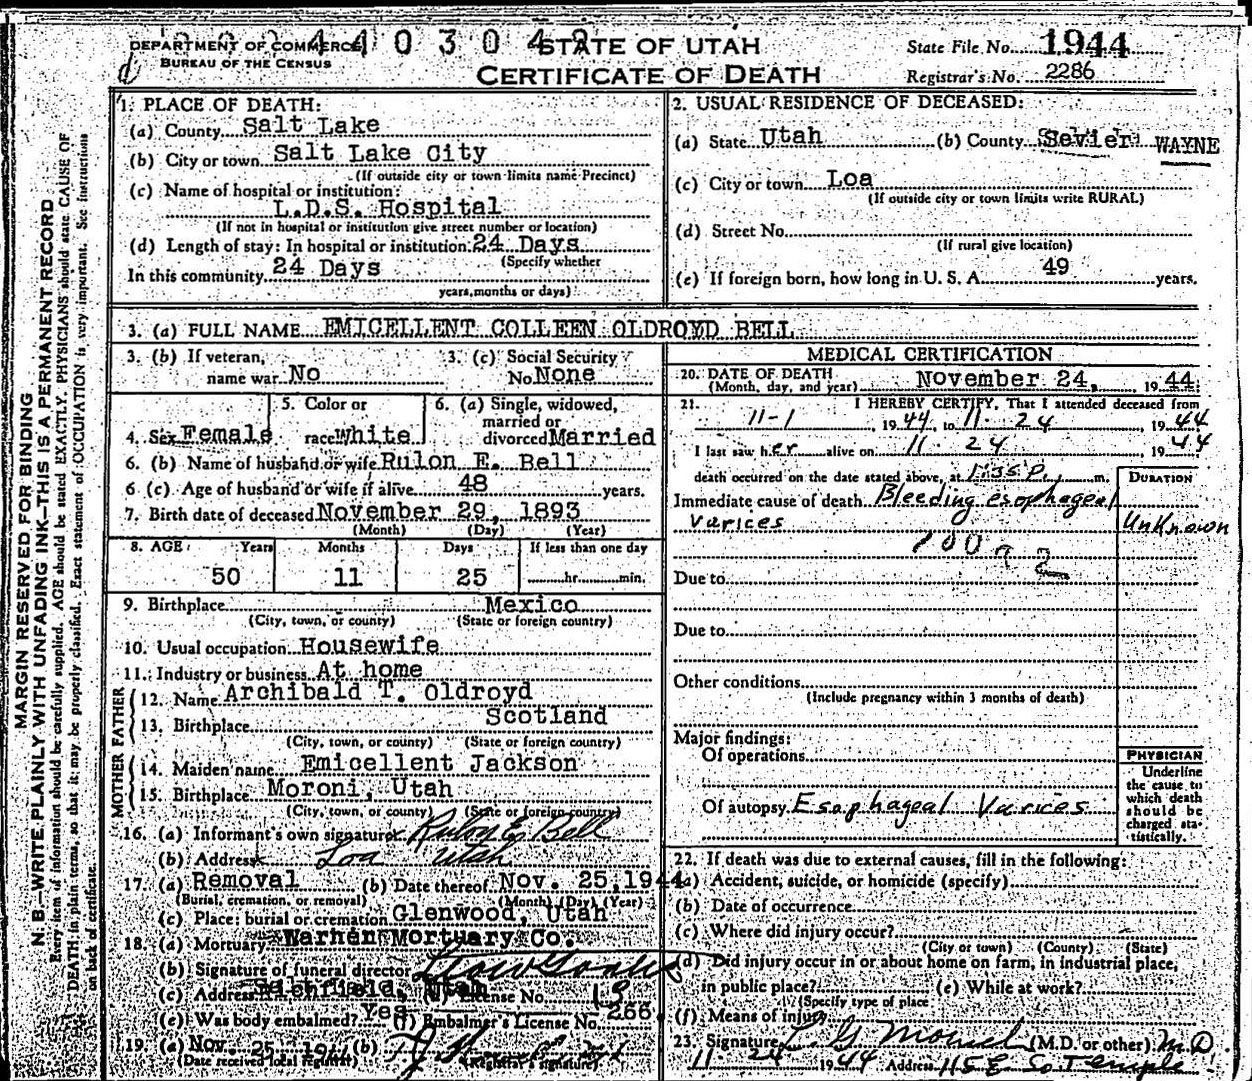 DEPARTMENT OF COMMERCE
BUREAU OF THE CENSUS
STATE OF UTAH
CERTIFICATE OF DEATH
State File No. 1944
Registrar's No. 2286
MARGIN RESERVED FOR BINDING
N. B.—WRITE PLAINLY WITH UNFADING INK—THIS IS A PERMANENT RECORD
Every item of information should be carefully supplied. AGE should be stated EXACTLY. PHYSICIANS should state CAUSE OF
DEATH in plain terms, so that it may be properly classified. Exact statement of OCCUPATION is very important. See instructions
on back of certificate.
1. PLACE OF DEATH:
(a) County Salt Lake
(b) City or town Salt Lake City
(If outside city or town limits name Precinct)
(c) Name of hospital or institution:
L.D.S. Hospital
(If not in hospital or institution give street number or location)
(d) Length of stay: In hospital or institution 24 Days
(Specify whether
In this community 24 Days
years, months or days)
2. USUAL RESIDENCE OF DECEASED:
(a) State Utah (b) County Sevier WAYNE
(c) City or town Loa
(If outside city or town limits write RURAL)
(d) Street No.
(If rural give location)
(e) If foreign born, how long in U. S. A. 49 years.
3. (a) FULL NAME EMICELLENT COLLEEN OLDROYD BELL
3. (b) If veteran, 3. (c) Social Security
name war No No. None
5. Color or 6. (a) Single, widowed,
married or
4. Sex Female race White divorced Married
6. (b) Name of husband or wife Rulon E. Bell
6 (c) Age of husband or wife if alive 48 years.
7. Birth date of deceased November 29, 1893
(Month) (Day) (Year)
8. AGE Years Months Days If less than one day
50 11 25 hr. min.
9. Birthplace Mexico
(City, town, or county) (State or foreign country)
10. Usual occupation Housewife
11. Industry or business At home
FATHER
12. Name Archibald T. Oldroyd
13. Birthplace Scotland
(City, town, or county) (State or foreign country)
MOTHER
14. Maiden name Emicellent Jackson
15. Birthplace Moroni, Utah
(City, town, or county) (State or foreign country)
16. (a) Informant's own signature Rulon E. Bell
(b) Address Loa Utah
17. (a) Removal (b) Date thereof Nov. 25, 1944
(Burial, cremation, or removal) (Month) (Day) (Year)
(c) Place: burial or cremation Glenwood, Utah
18. (a) Mortuary Warnen Mortuary Co.
(b) Signature of funeral director
(c) Address Richfield, Utah (d) License No. 13
(e) Was body embalmed? Yes (f) Embalmer's License No. 266
19. (a) Nov. 25 (b)
(Date received local registrar) (Registrar's signature)
MEDICAL CERTIFICATION
20. DATE OF DEATH
(Month, day, and year) November 24, 1944
21. I HEREBY CERTIFY, That I attended deceased from
11-1 1944, to 11-24, 1944
I last saw her alive on 11 24 1944
death occurred on the date stated above, at 1:35 P. m. DURATION
Immediate cause of death Bleeding esophageal
varices Unknown
Due to
Due to
Other conditions
(Include pregnancy within 3 months of death)
Major findings:
Of operations
Of autopsy Esophageal Varices
PHYSICIAN
Underline
the cause to
which death
should be
charged sta-
tistically.
22. If death was due to external causes, fill in the following:
(a) Accident, suicide, or homicide (specify)
(b) Date of occurrence
(c) Where did injury occur?
(City or town) (County) (State)
(d) Did injury occur in or about home on farm, in industrial place,
in public place? (e) While at work?
(Specify type of place
(f) Means of injury
23. Signature (M.D. or other) M.D.
11 24 1944 Address 115 E. So. Temple